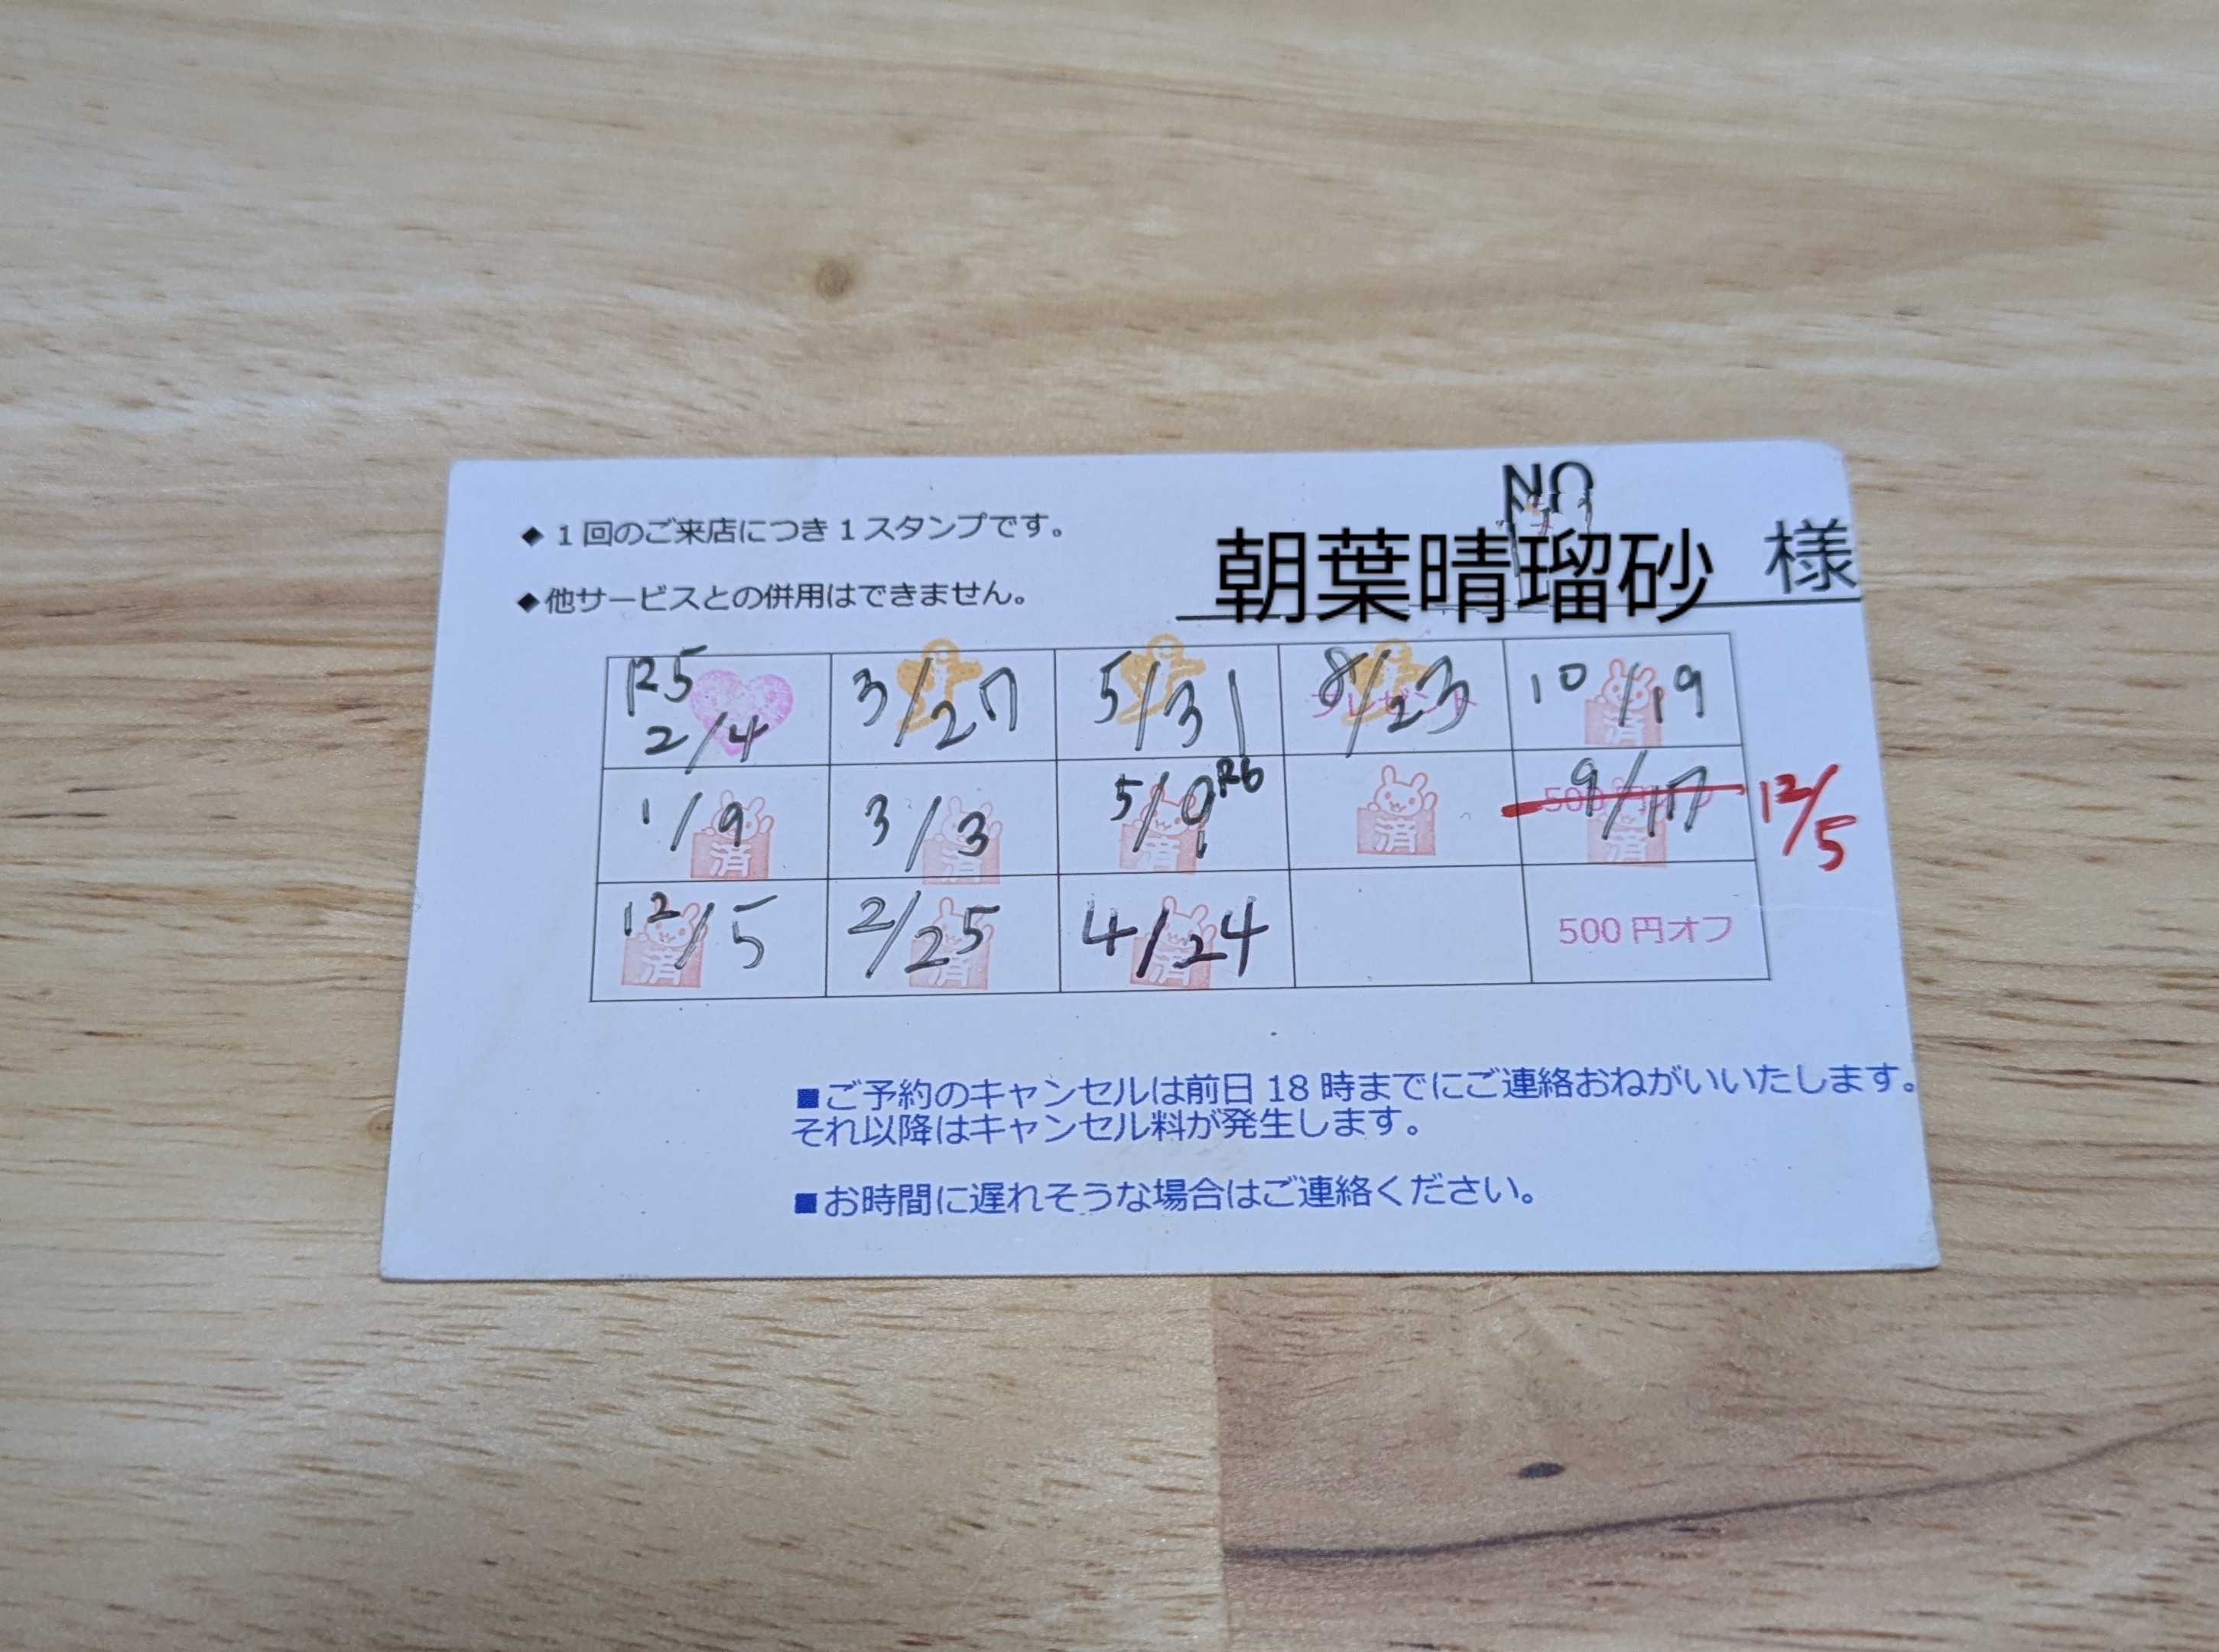 NO
◆1回のご来店につき1スタンプです。
朝葉晴瑠砂 様
◆他サービスとの併用はできません。
R5 2/4 3/27 5/31 プレゼント 8/23 10/19 済
1/9 済 3/3 済 5/9 R6 済 済 500円オフ 9/17 済 12/5
12/5 済 2/25 済 4/24 済 500円オフ
■ご予約のキャンセルは前日18時までにご連絡おねがいいたします。
それ以降はキャンセル料が発生します。
■お時間に遅れそうな場合はご連絡ください。